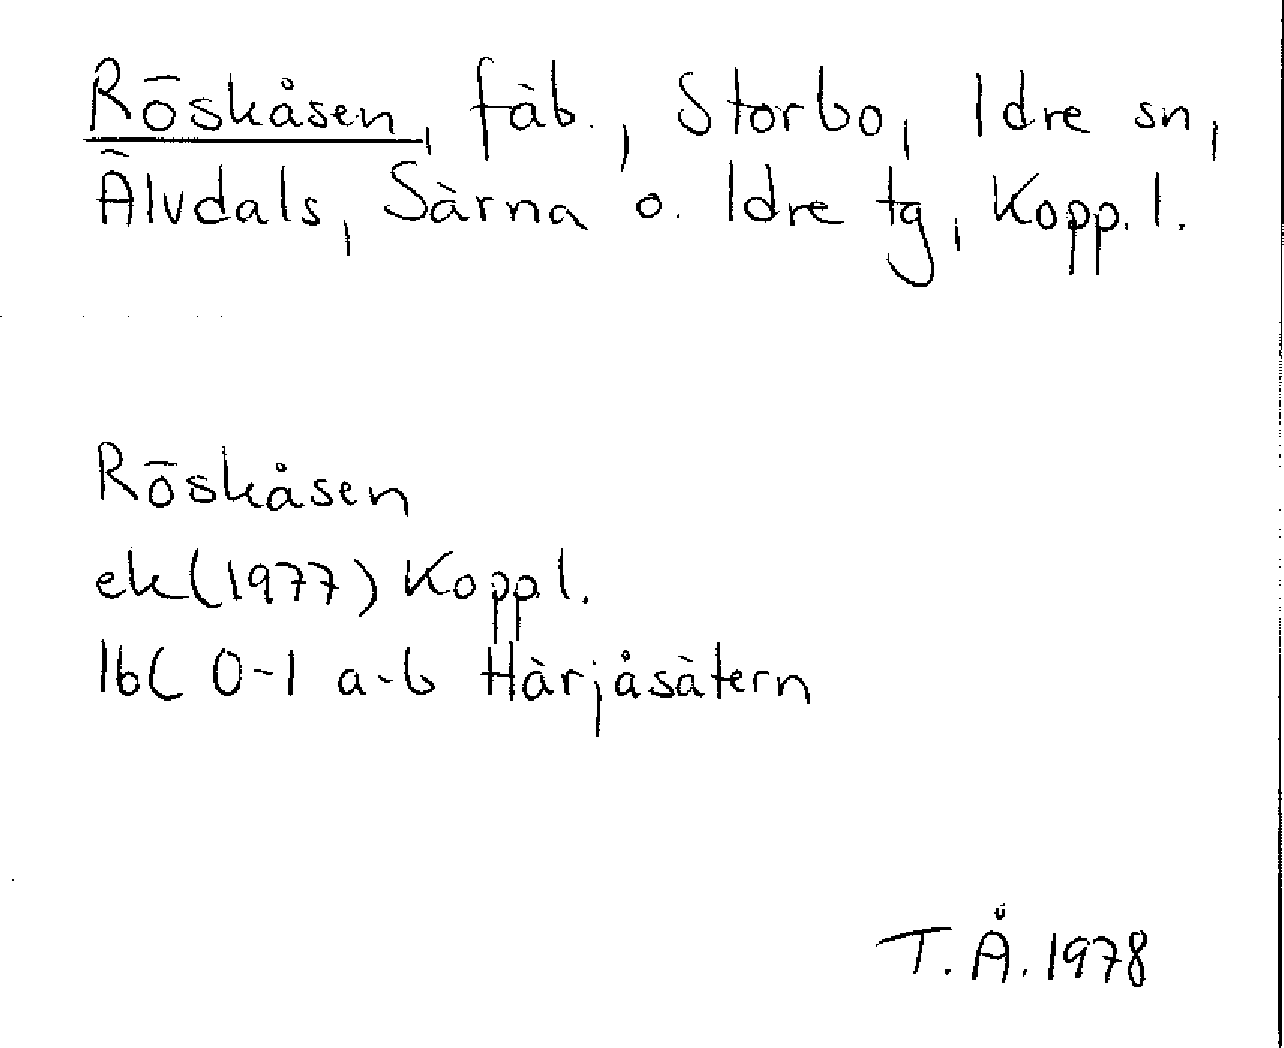 Röskåsen, fäb., Storbo, Idre sn,
Älvdals, Särna o. Idre tg, Kopp. l.
Röskåsen
ek (1977) Kopp l.
16C 0-1 a-b Härjåsätern
T. Å. 1978